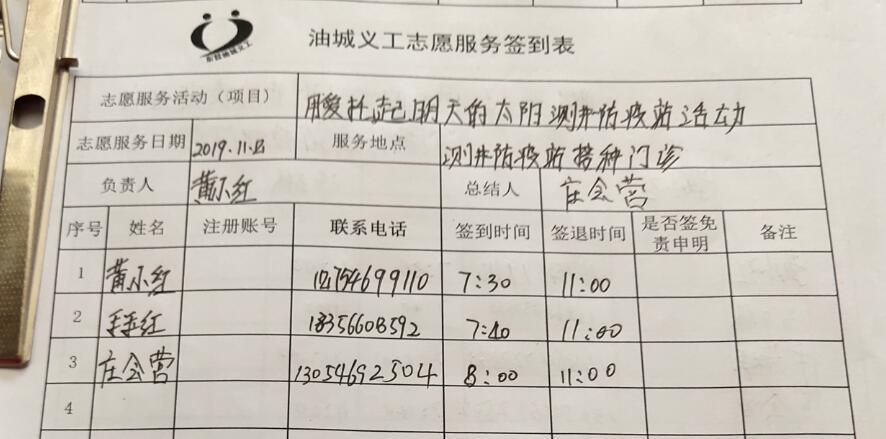 油城义工志愿服务签到表
东营油城义工
志愿服务活动（项目） 用爱托起明天的太阳测井防疫站活动
志愿服务日期 2019.11.13 服务地点 测井防疫站接种门诊
负责人 黄小红 总结人 庄会营
序号 姓名 注册账号 联系电话 签到时间 签退时间 是否签免责申明 备注
1 黄小红 7:30 11:00
2 7:40 11:00
3 庄会营 13054692504 8:00 11:00
4